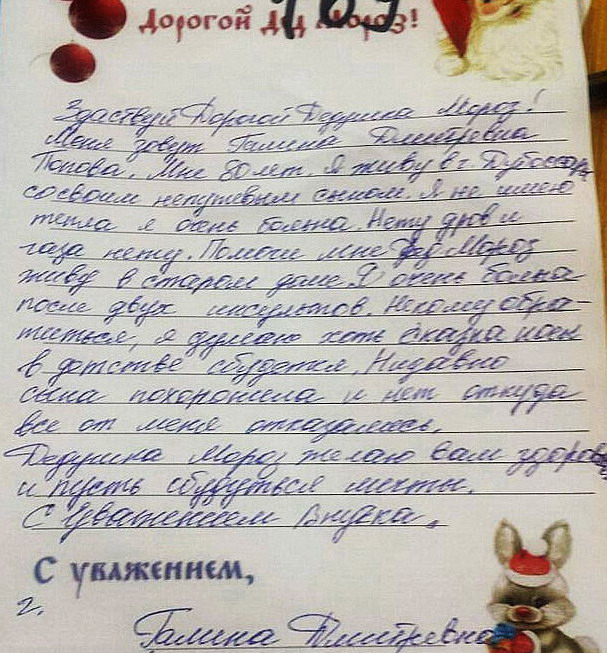 Дорогой Дед Мороз!
Здаствуй Дорогой Дедушка Мороз!
Меня зовут Галина Дмитревна
Попова. Мне 80 лет. Я живу в г. Дубоссары
со своим непутевым сыном. Я не имею
тепла я очень больна. Нету дров и
газа нету. Помочи мне Дед Мороз
живу в старом доме. Я очень больна
после двух инсультов. Некому обра-
титься, я думаю хоть сказка
в дэтстве сбудется. Нидавно
сына похоронила и нет откуда
все от меня отказались.
Дедушка Мороз желаю вам здоров
и пусть сбудуться мечты.
С Уважением Внучка.
С уважением,
г.
Галина Дмитревна